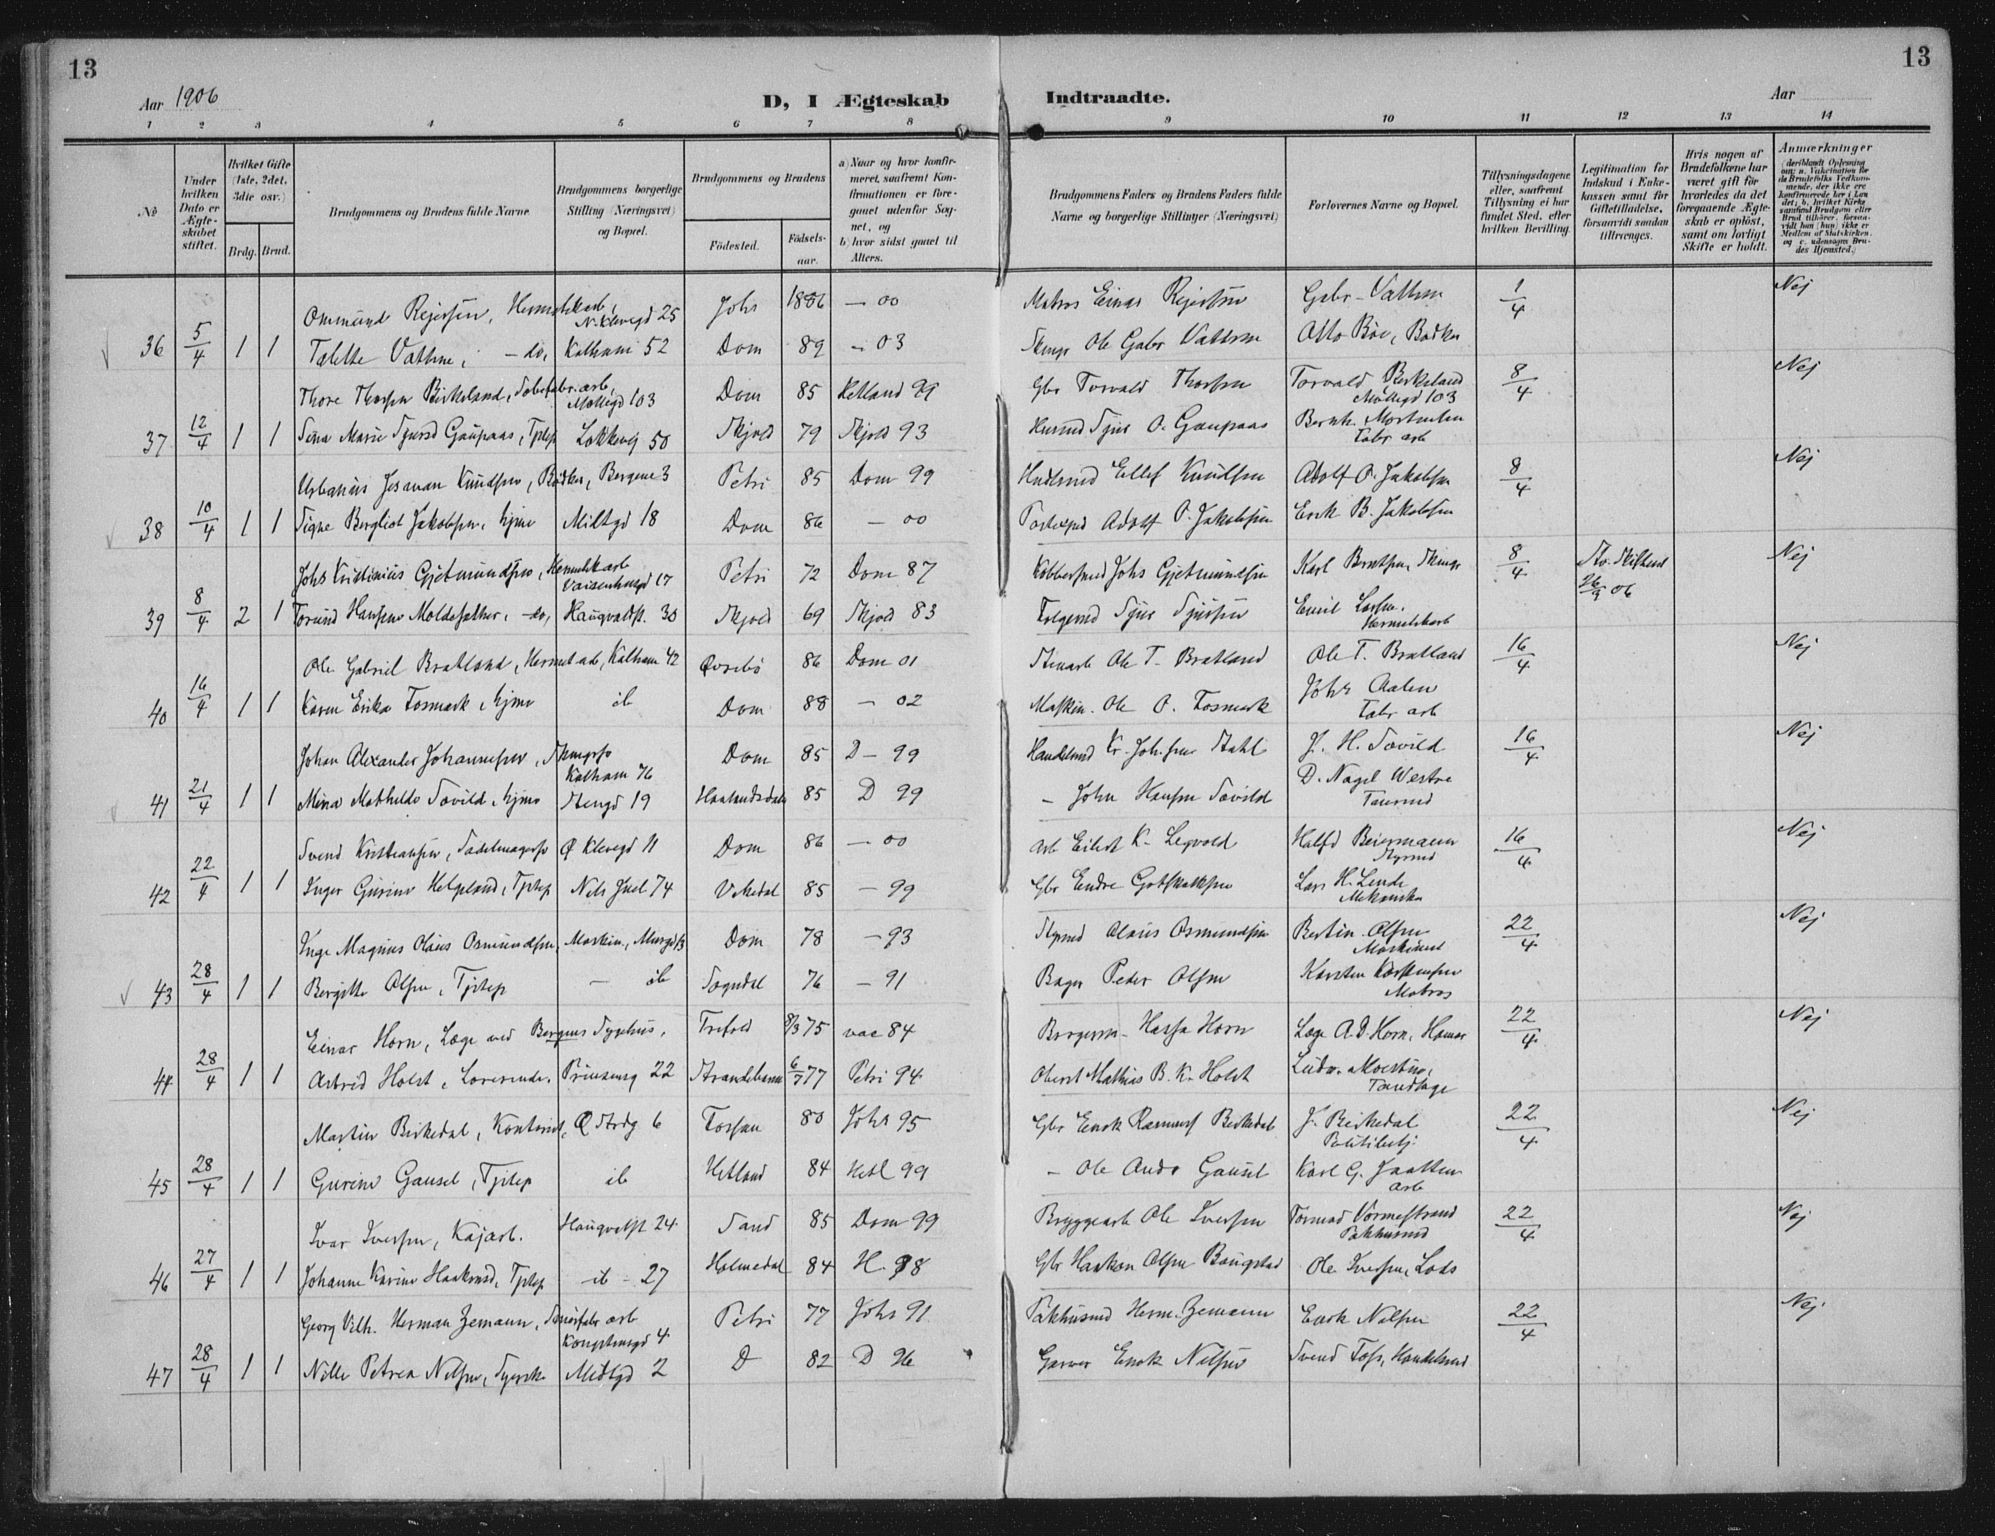 13
13
Aar 1906
D, I Ægteskab Indtraadte.
Aar
1 2 3 4 5 6 7 8 9 10 11 12 13 14
No
Under hvilken Dato er Ægteskabet stiftet.
Hvilket Gifte (1ste, 2det, 3die osv.)
Brdg. Brud.
Brudgommens og Brudens fulde Navne.
Brudgommens borgerlige Stilling (Næringsvei) og Bopæl.
Brudgommens og Brudens
Fødested. Fødselsaar.
a) Naar og hvor konfirmeret, saafremt Konfirmationen er foregaaet udenfor Sognet, og
b) hvor sidst gaaet til Alters.
Brudgommens Faders og Brudens Faders fulde Navne og borgerlige Stillinger (Næringsvei)
Forlovernes Navne og Bopæl.
Tillysningsdagene eller, saafremt Tillysning ei har fundet Sted, efter hvilken Bevilling.
Legitimation for Indskud i Enkekassen samt for Giftetilladelse, forsaavidt saadan tiltrænges.
Hvis nogen af Brudefolkene har været gift før hvorledes da det foregaaende Ægteskab er opløst, samt om lovligt Skifte er holdt.
Anmærkninger
Ommund Rejersen, Hermetikarb, N. Klevegd 25 Johs 1886 — 00 Matros Einar Rejersen Gabr. Vathne 1/4 Nej
36 5/4 1 1 Talette Vathne, — do, Kalham 52 Dom 89 — 03 Ole Gabr Vathne Otto Bøe, Bødker
Thore Thorsen Birkeland, Møllegd 103 Dom 85 Hetland 99 Gbr Torvald Thorsen Torvald Birkeland Møllegd 103 8/4 Nej
37 12/4 1 1 Sina Marie Gaupaas, Tjptep Løkkevej 50 Skjold 79 Skjold 93 Husmd Sjur O. Gaupaas Bernh. Mortensen Fabr arb
Urbanius Knudsen, Bødker, Bergene 3 Petri 85 Dom 99 Ellef Knudsen Adolf O. Jakobsen 8/4 Nej
38 10/4 1 1 Signe Bergliot Jakobsen, hjme Midtgd 18 Dom 86 — 00 Adolf O. Jakobsen Erik B. Jakobsen
Johs Kristinius Gjetmundsen, Hermetikarb Vaisenhusgd 17 Petri 72 Dom 87 Kobbersmd Johs Gjetmundsen Karl Berntsen, 8/4 Nej
39 8/4 2 1 Torund Hansen Moldesæther, — do, Haugvaldst. 30 Skjold 69 Skjold 83 Sjur Sjursen Emil Larsen, Hermetikarb
Ole Gabriel Bratland, Hermet arb, Kalham 42 Øvrebø 86 Dom 01 Stenarb Ole T. Bratland Ole T. Bratland 16/4 Nej
40 16/4 1 1 Karen Erika Fosmark, hjme ib Dom 88 — 02 Maskin. Ole O. Fosmark Johs Aalen Fabr arb
Johan Alexander Johannesen, Kalham 76 Dom 85 D — 99 Handelsmd J. H. Tovild 16/4 Nej
41 21/4 1 1 Mina Mathilde Tovild, hjme Stengd 19 85 D 99 — John Hansen Tovild D. Nagel Westre
Svend Kristiansen, Sadelmagersv Ø Klevegd 11 Dom 86 — 00 arb Eilert K. Legvold Halfd Beiermann Styrmd 16/4 Nej
42 22/4 1 1 Inger Gurine Helgeland, Tjptep Nils Juel 74 Vikedal 85 — 99 Gbr Endre Gotskalksen Lars H. Lende Mekaniker
Inge Magnus Olaus Osmundsen, Maskin, Dom 78 — 93 Styrmd Olaus Osmundsen Bertin Olsen Maskinist 22/4 Nej
43 28/4 1 1 Bergitte Olsen, Tjptep — ib Sogndal 76 — 91 Bager Peder Olsen Karsten Karstensen Matros
Einar Horn, Læge ved Bergens Sygehus, 8/3 75 vac 84 Horn Læge A.D. Horn, Hamar 22/4 Nej
44 28/4 1 1 Astrid Holst, Lærerinde, Prinsensg 22 Strandebarm 6/7 77 Petri 94 Oberst Mathias B. K. Holst Ludv. Tandlæge
Martin Birkedal, Kontorist, Ø Strdg 6 Fossan 80 Johs 95 Gbr Enok Rasmus Birkedal J. Birkedal Politibetj 22/4 Nej
45 28/4 1 1 Gurine Gausel, Tjptep ib Hetland 84 Hetl 99 — Ole Ands Gausel Karl G. Jaatten arb
Ivar Iversen, Kajarb. Haugvaldst 24 Sand 85 Dom 99 Bryggearb Ole Iversen Tormod Vormestrand Pakhusmd 22/4 Nej
46 27/4 1 1 Johanne Karine Haakonsd, Tjptep — ib — 27 Holmedal 84 H. 98 Gbr Haakon Olsen Baugstad Ole Iversen, Lods
Georg Vilh. Herman Zemann, arb Kongsteinsgd 4 Petri 77 Johs 91 Pakhusmd Herm. Zemann Enok Nilsen 22/4 Nej
47 28/4 1 1 Nille Petrea Nilsen, Syerske Midtgd 2 D 82 D 96 Garver Enok Nilsen Svend Foss, Handelsmd